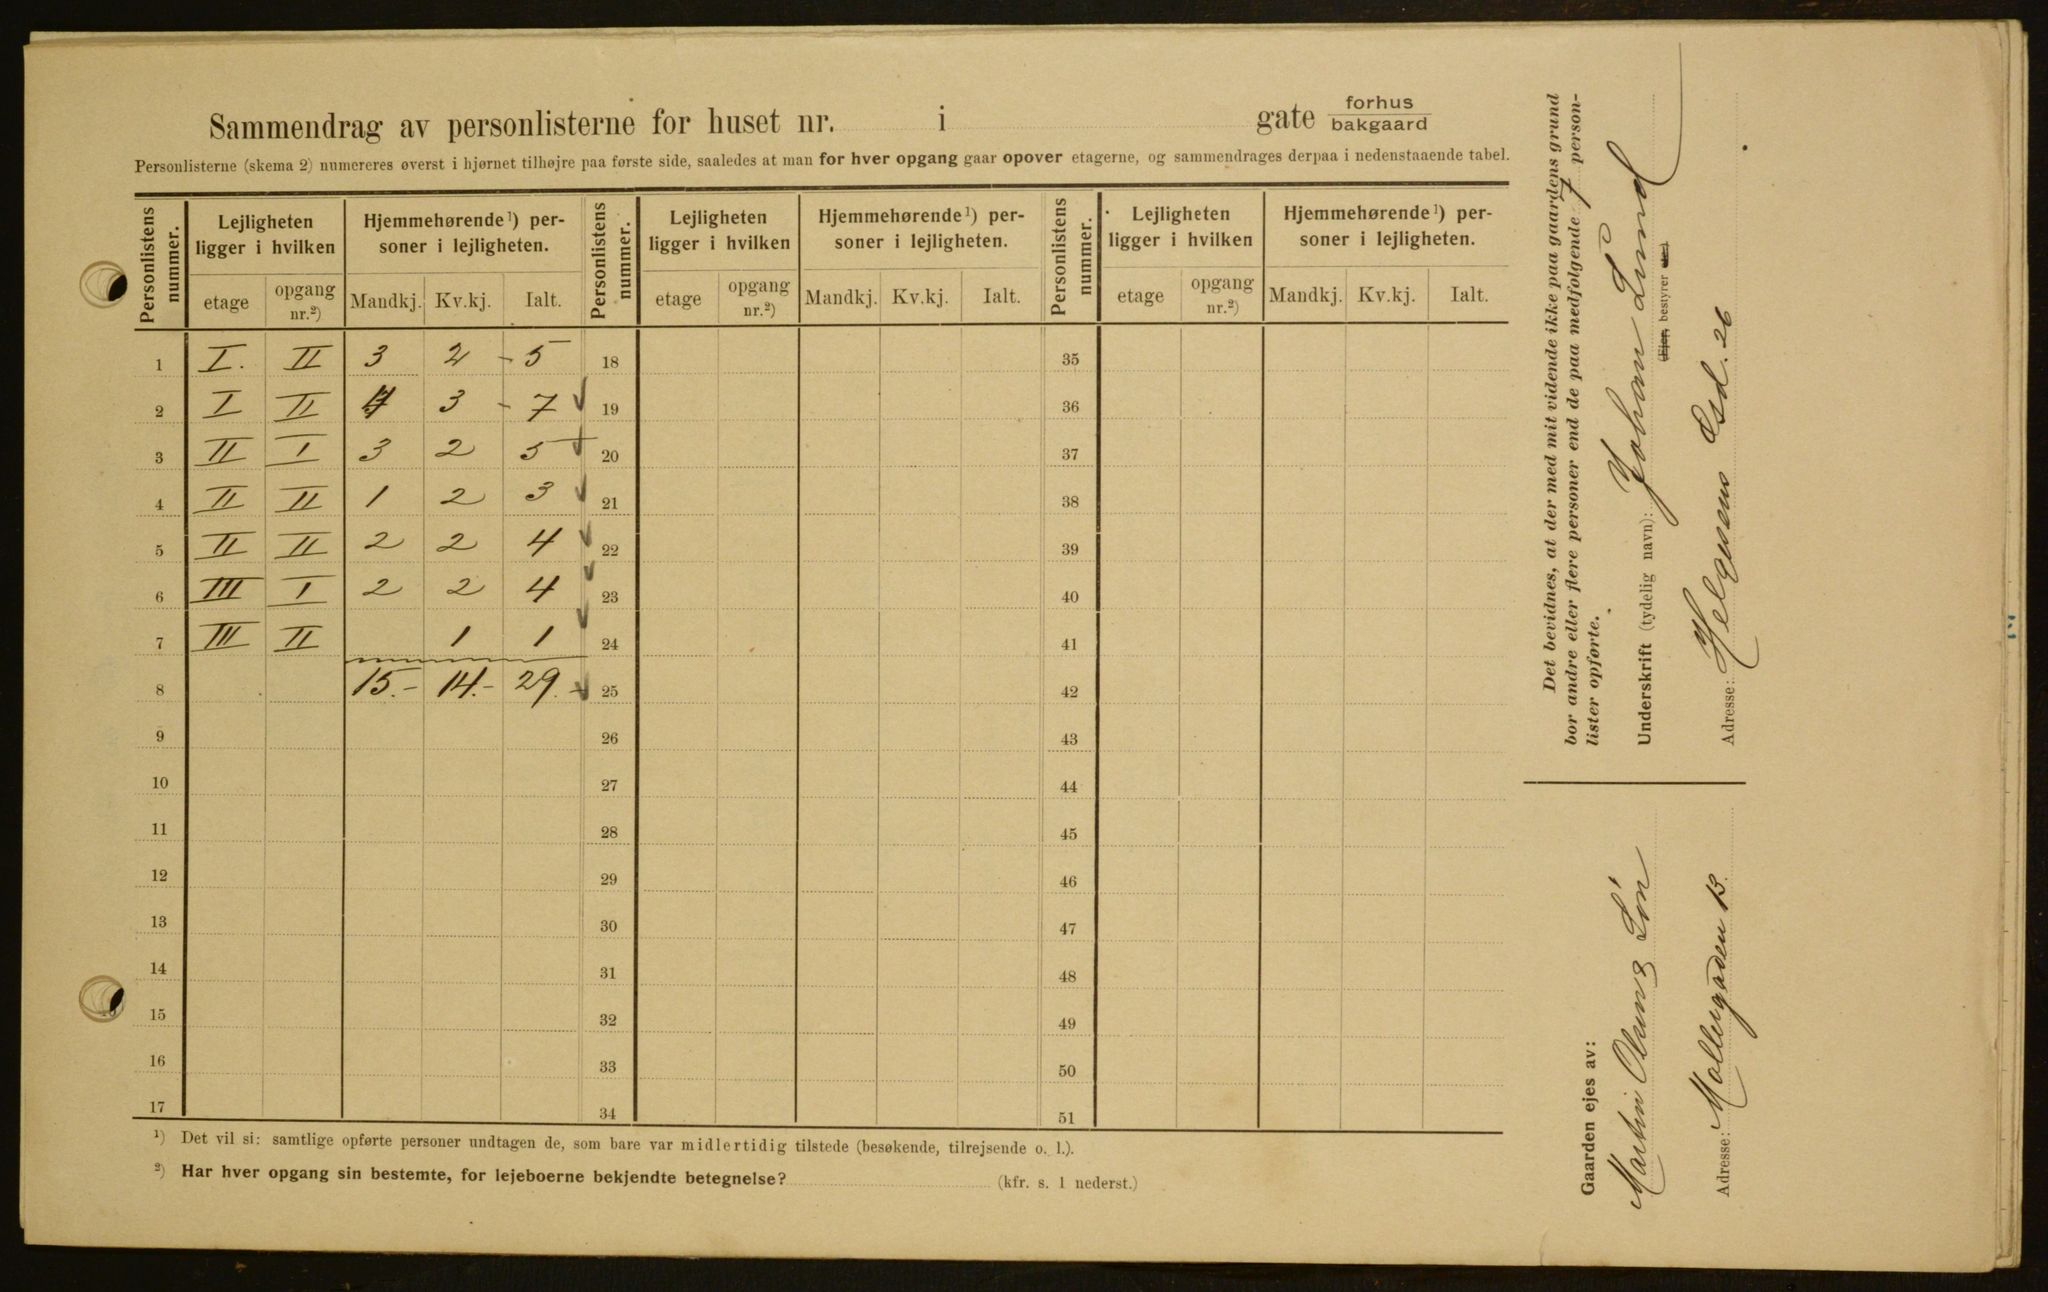 Sammendrag av personlisterne for huset nr. i gate forhus
bakgaard
Personlisterne (skema 2) numereres øverst i hjørnet tilhøjre paa første side, saaledes at man for hver opgang gaar opover etagerne, og sammendrages derpaa i nedenstaaende tabel.
Personlistens nummer. Lejligheten ligger i hvilken Hjemmehørende¹) personer i lejligheten. Personlistens nummer. Lejligheten ligger i hvilken Hjemmehørende¹) personer i lejligheten. Personlistens nummer. Lejligheten ligger i hvilken Hjemmehørende¹) personer i lejligheten.
etage opgang nr.²) Mandkj. Kv.kj. Ialt. etage opgang nr.²) Mandkj. Kv.kj. Ialt. etage opgang nr.²) Mandkj. Kv.kj. Ialt.
1 I. II 3 2 - 5 18 35
2 I II 4 3 - 7 19 36
3 II I 3 2 5 20 37
4 II II 1 2 3 21 38
5 II II 2 2 4 22 39
6 III I 2 2 4 23 40
7 III II 1 1 24 41
8 15.- 14.- 29.- 25 42
9 26 43
10 27 44
11 28 45
12 29 46
13 30 47
14 31 48
15 32 49
16 33 50
17 34 51
¹) Det vil si: samtlige opførte personer undtagen de, som bare var midlertidig tilstede (besøkende, tilrejsende o. l.).
²) Har hver opgang sin bestemte, for lejeboerne bekjendte betegnelse? (kfr. s. 1 nederst.)
Det bevidnes, at der med mit vidende ikke paa gaardens grund
bor andre eller flere personer end de paa medfølgende 7 person-
lister opførte.
Underskrift (tydelig navn): Johan Lund
(Ejer, bestyrer etc.)
Adresse: Helgesens Gd. 26
Gaarden ejes av:
Martin Olsens
Adresse: Møllergaden 13.